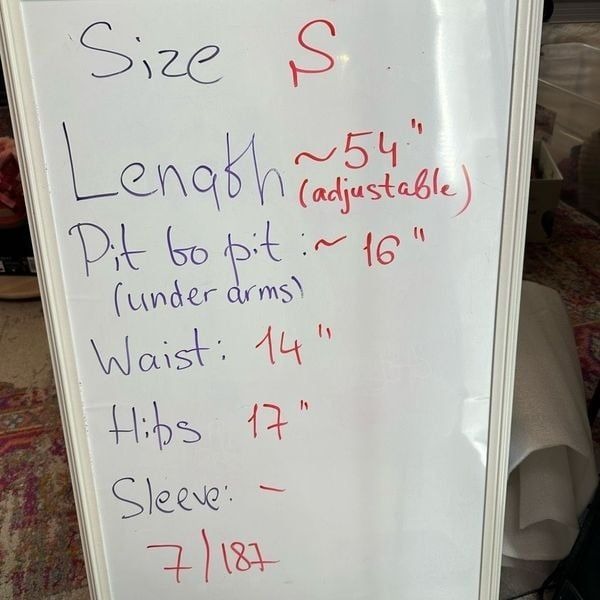 Size S
Length ~54"
(adjustable)
Pit to pit: ~ 16"
(under arms)
Waist: 14"
Hips 17"
Sleeve: -
7/187